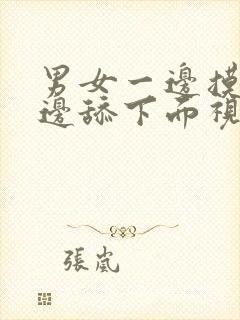 男女一邊摸
邊舔下面視
張嵐